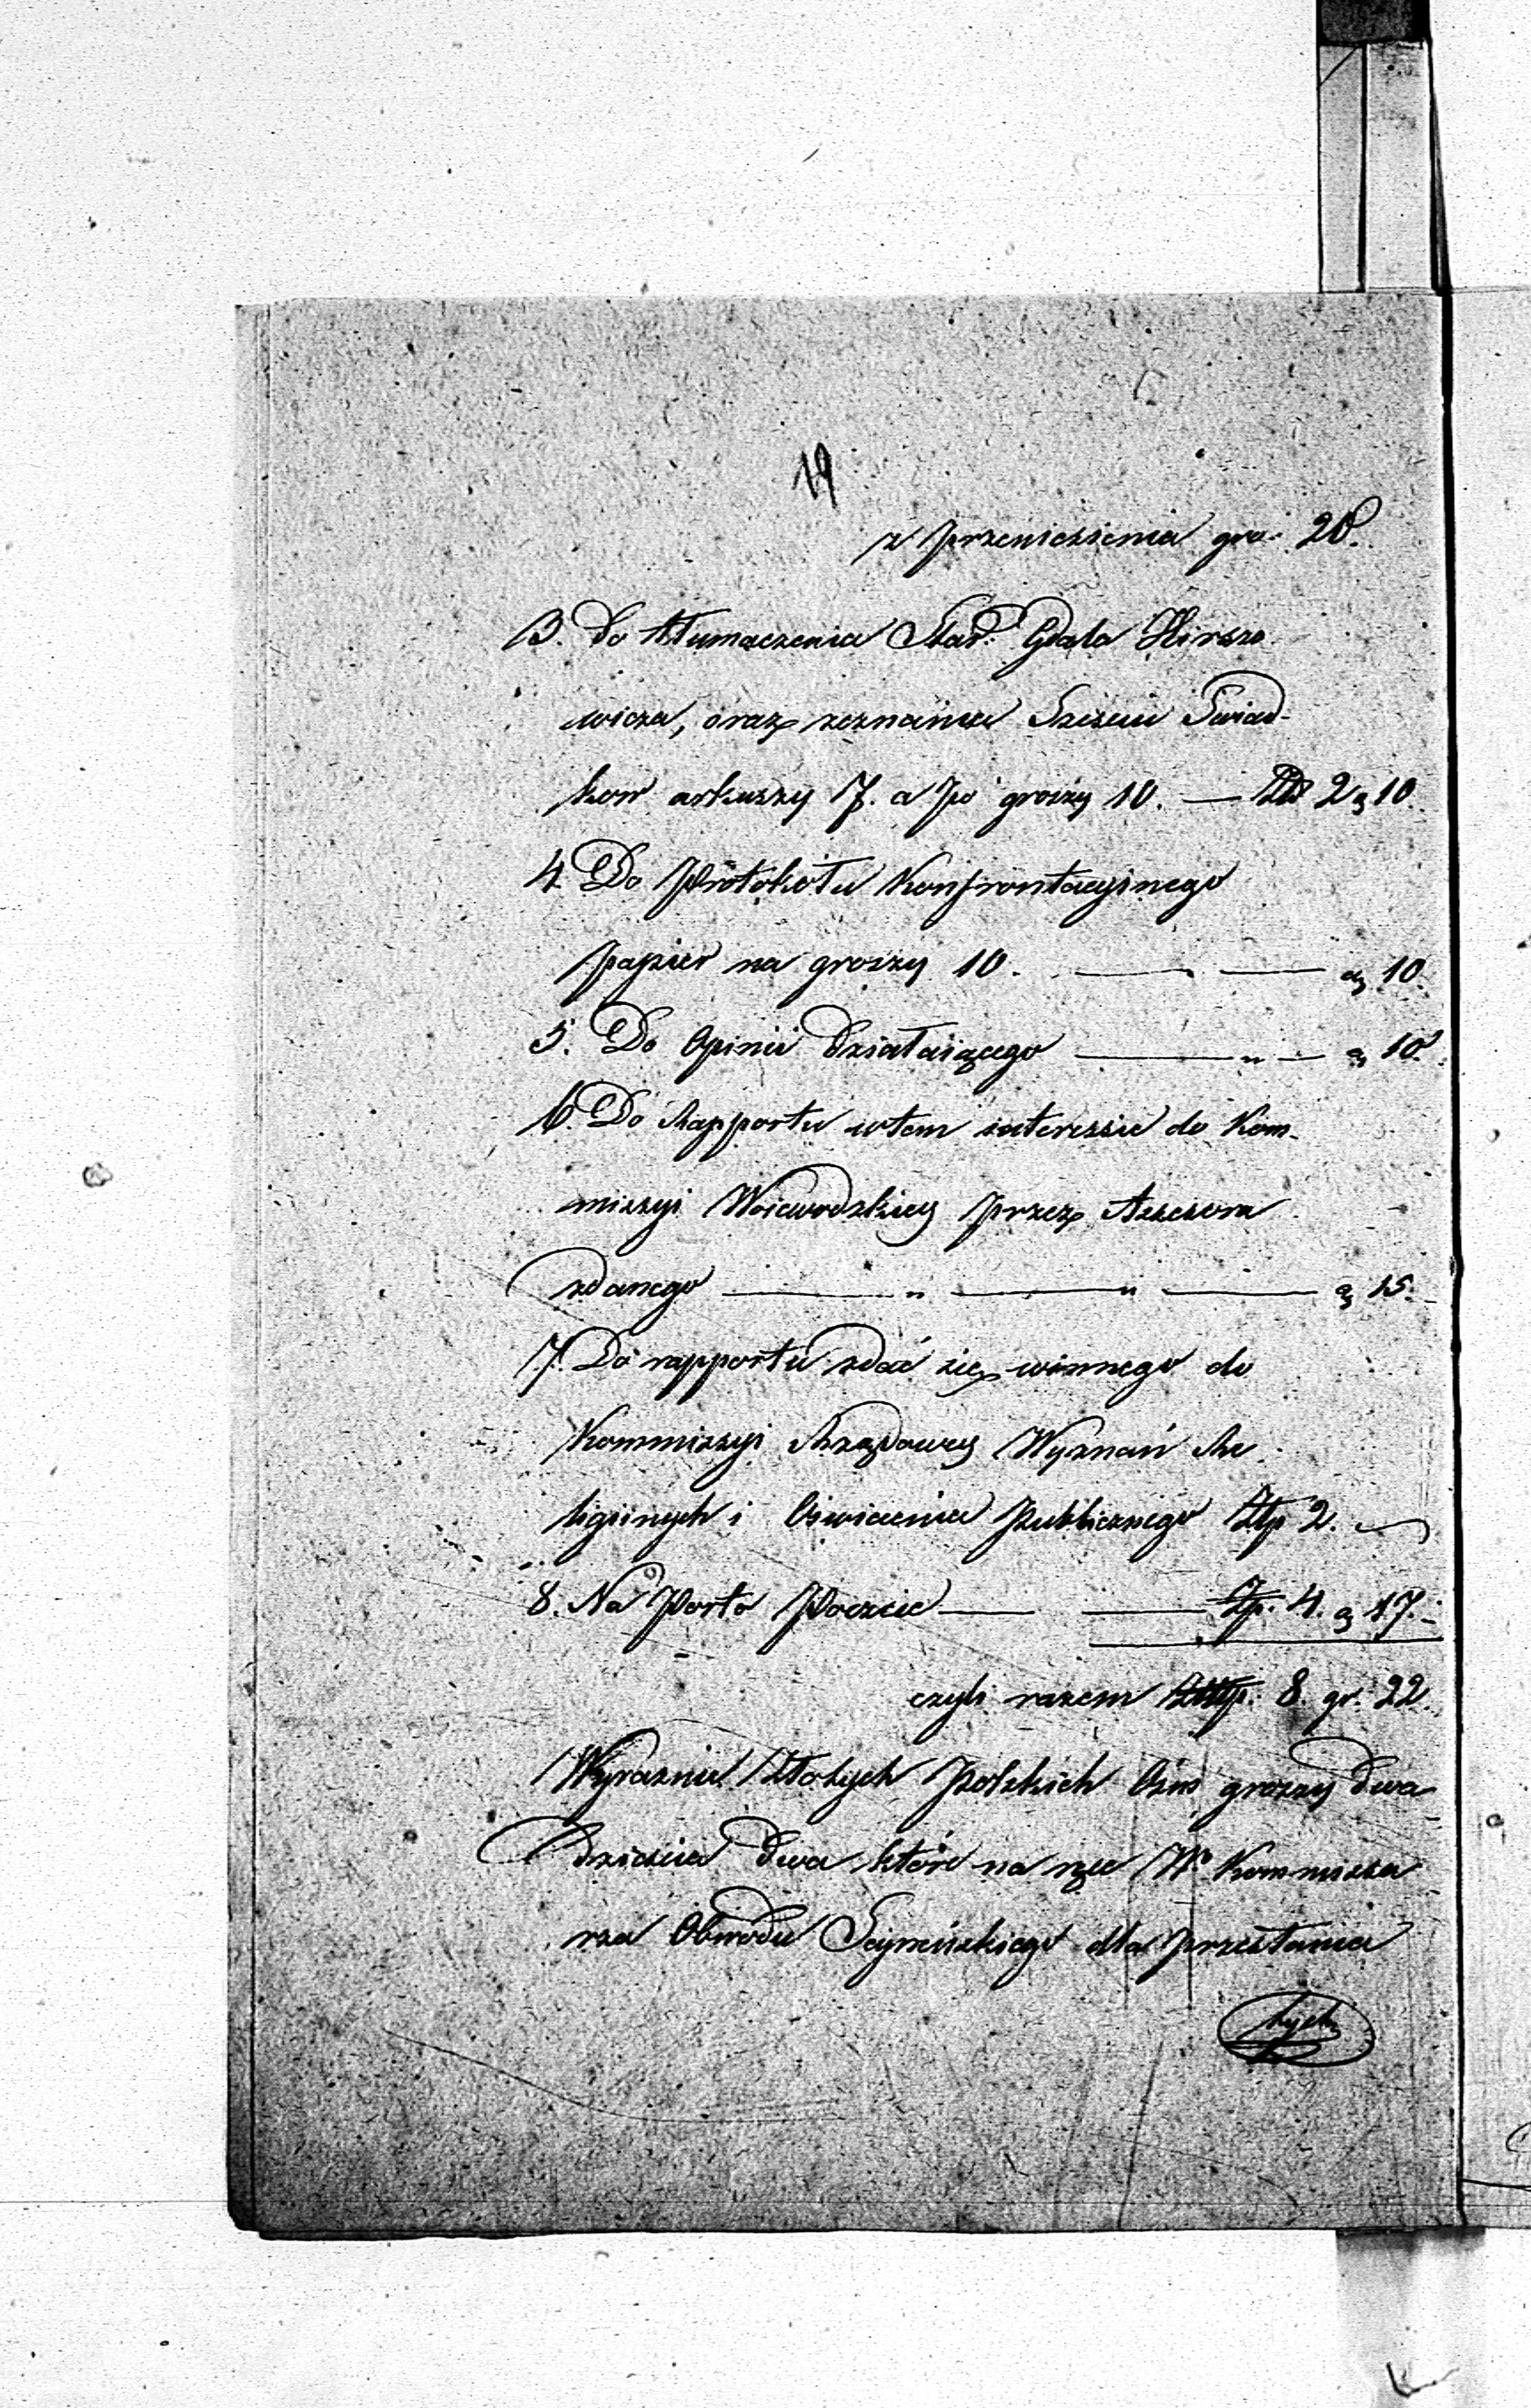 19
z przeniesienia gro: 20.
3. do tłumaczenia Star. Gdala Hirszo
wicza, oraz zeznania Sześciu Świad-
kow arkuszy 7. a po groszy 10. — Złp 2 g 10.
4. Do Protokołu Konfrontacyinego
papier na groszy 10. — — g 10.
5. Do Opinii działaiącego — „ — g 10.
6. Do Rapportu wtem interessie do Kom-
missyi Woiewodzkiey przez Assessora
zdanego — „ — „ — g 15.
7. Do rapportu zdać się winnego do
Kommissyi Rządowey Wyznań Re
ligiinych i Oświecenia Publicznego Złp 2. —
8. Na Porto Poczcie — — Złp. 4. g 17.
czyli razem 8. gr. 22.
Wyraznie Złotych Polskich Ośm groszy dwa
dzieścia dwa które na ręce Wo Kommissa
rza Obwodu Seyneńskiego dla przesłania
tych